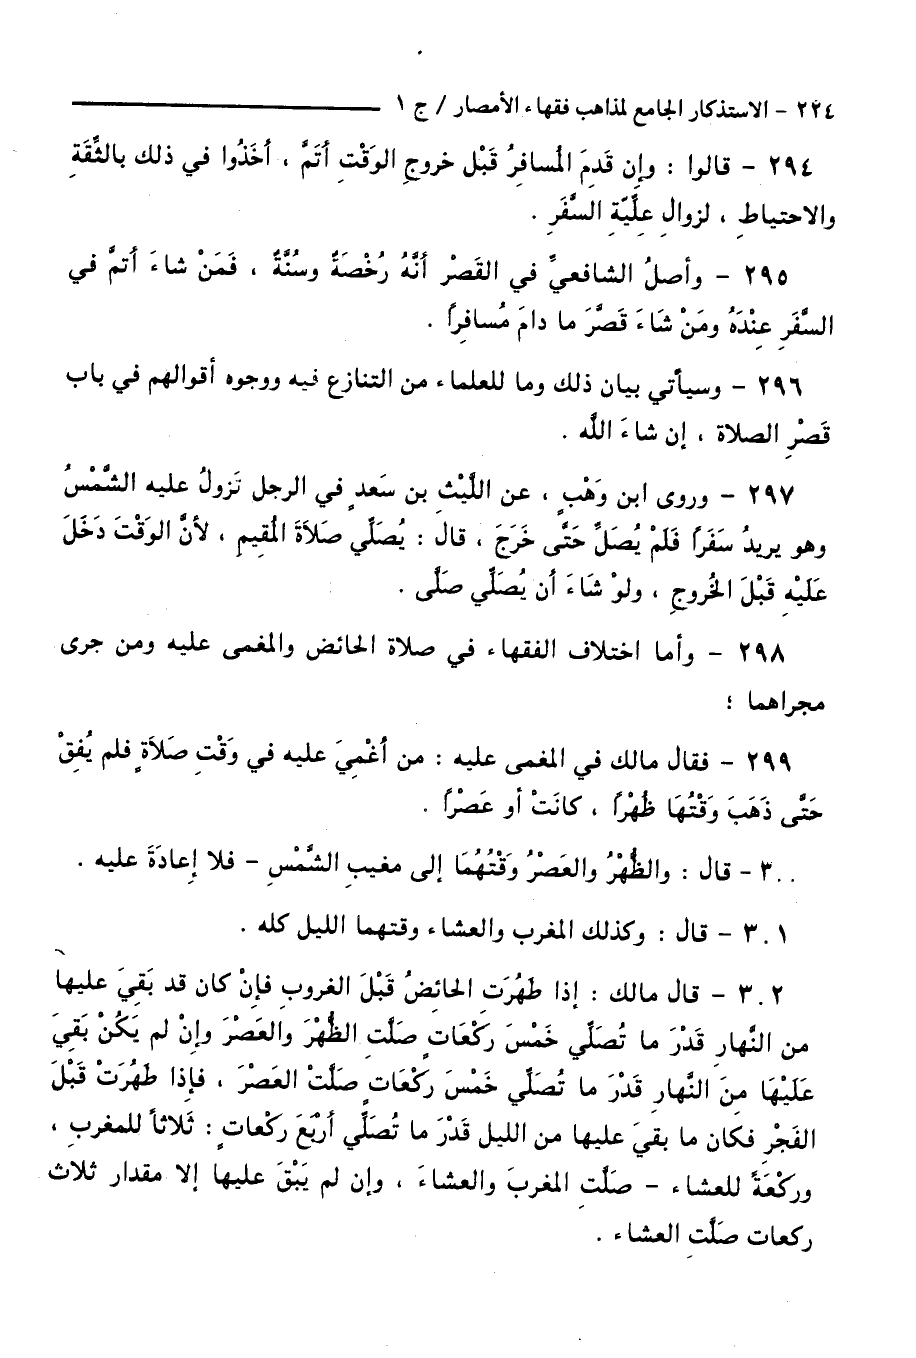 ٢٢٤ - الاستذكار الجامع لمذاهب فقهاء الأمصار / ج ١
٢٩٤ - قالوا : وإن قَدِمَ المُسافِرُ قَبْل خروجِ الوَقْتِ أتَمَّ ، أخَذُوا في ذلك بالثِّقَةِ
والاحتياطِ ، لزوالِ عِلِّيَّةِ السَّفَرِ .
٢٩٥ - وأصلُ الشافعيِّ في القَصْرِ أنَّهُ رُخْصَةٌ وسُنَّةٌ ، فَمَنْ شاءَ أتمَّ في
السَّفَرِ عِنْدَهُ ومَنْ شَاءَ قَصَّرَ ما دامَ مُسافِراً .
٢٩٦ - وسيأتي بيان ذلك وما للعلماء من التنازع فيه ووجوه أقوالهم في باب
قَصْرِ الصلاة ، إن شاءَ اللَّه .
٢٩٧ - وروى ابن وَهْبٍ ، عن اللَّيْثِ بن سَعدٍ في الرجل تَزولُ عليه الشَّمْسُ
وهو يريدُ سَفَراً فَلَمْ يُصَلِّ حَتَّى خَرَجَ ، قال : يُصَلِّي صَلاَةَ المُقِيمِ ، لأنَّ الوَقْتَ دَخَلَ
عَلَيْهِ قَبْلَ الخُروجِ ، ولوْ شَاءَ أن يُصَلِّي صَلَّى .
٢٩٨ - وأما اختلاف الفقهاء في صلاة الحائض والمغمى عليه ومن جرى
مجراهما ؛
٢٩٩ - فقال مالك في المغمى عليه : من أغْمِيَ عليه في وَقْتِ صَلاَةٍ فلم يُفِقْ
حَتَّى ذَهَبَ وَقْتُهَا ظُهْراً ، كانَتْ أو عَصْراً .
٣٠٠ - قال : والظُّهْرُ والعَصْرُ وَقْتُهُمَا إلى مغيبِ الشَّمْسِ - فلا إعادَةَ عليه .
٣٠١ - قال : وكذلك المغرب والعشاء وقتهما الليل كله .
٣٠٢ - قال مالك : إذا طَهُرَتِ الحائضُ قَبْلَ الغروبِ فإنْ كان قد بَقِيَ عليها
من النَّهارِ قَدْرَ ما تُصَلِّي خَمْسَ ركْعَاتٍ صَلَّتِ الظُّهْرَ والعَصْرَ وإنْ لم يَكُنْ بَقِيَ
عَلَيْهَا مِنَ النَّهارِ قَدْرَ ما تُصَلِّي خَمْسَ ركَعَاتٍ صَلَّتْ العَصْرَ ، فإذا طَهُرَتْ قَبْلَ
الفَجْرِ فكان ما بقيَ عليها من الليل قَدْرَ ما تُصَلِّي أرْبَعَ ركْعَاتٍ : ثَلاثاً للمغربِ ،
وركْعَةً للعشاءِ - صَلَّتِ المغربَ والعشاءَ ، وإن لم يَبْقَ عليها إلا مقدار ثلاث
ركعات صَلَّتِ العشاء .